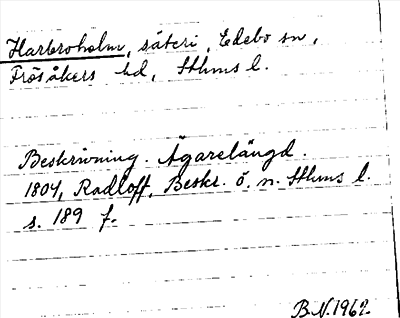 Harbroholm, säteri, Edebo sn,
Frösåkers hd, Sthms l.
Beskrivning. Ägarelängd.
1804, Radloff, Beskr. ö. n. Sthms l.
s. 189 f.
B.N. 1962.